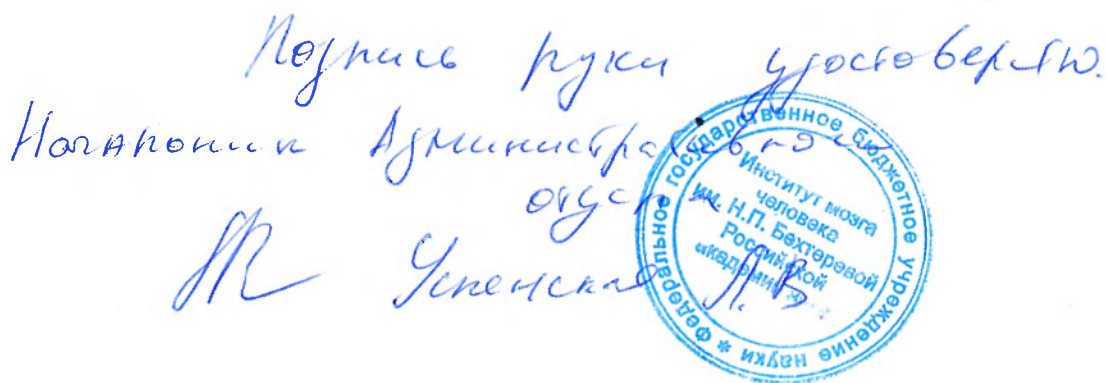 Подпись руки удостоверяю.
Начальник Административного
отдела
Успенская Л.В
федеральное государственное бюджетное учреждение науки *
Институт мозга
человека
им. Н.П. Бехтеревой
Российской
академии